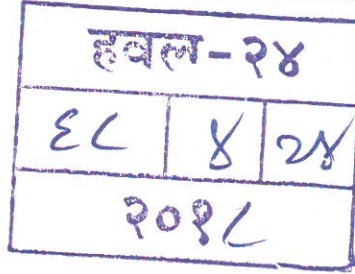 हवल-२४
६८ ४ २४
२०१८